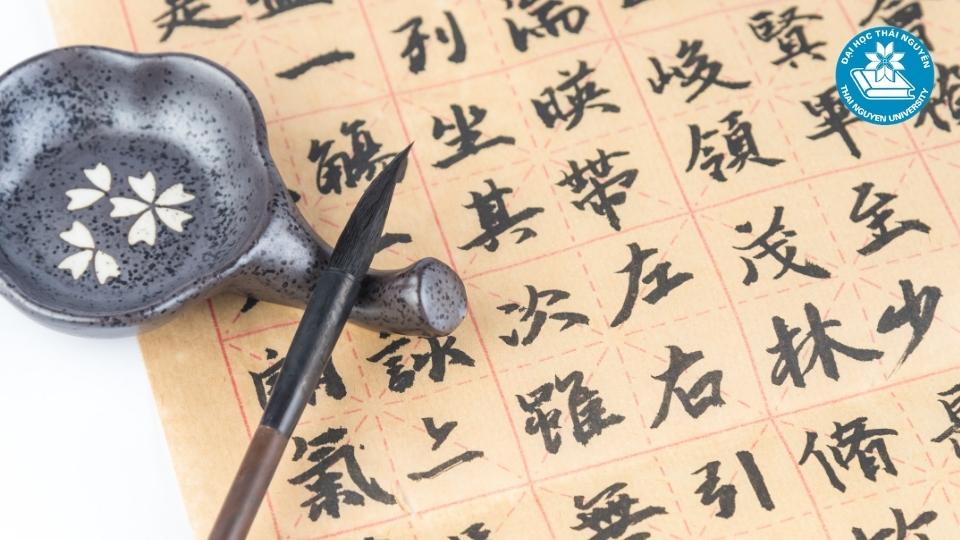 會
賢畢至少
峻領茂林脩
湍暎帶左右引
列坐其次雖無
一觴一詠
是
氣
ĐẠI HỌC THÁI NGUYÊN
THAI NGUYEN UNIVERSITY